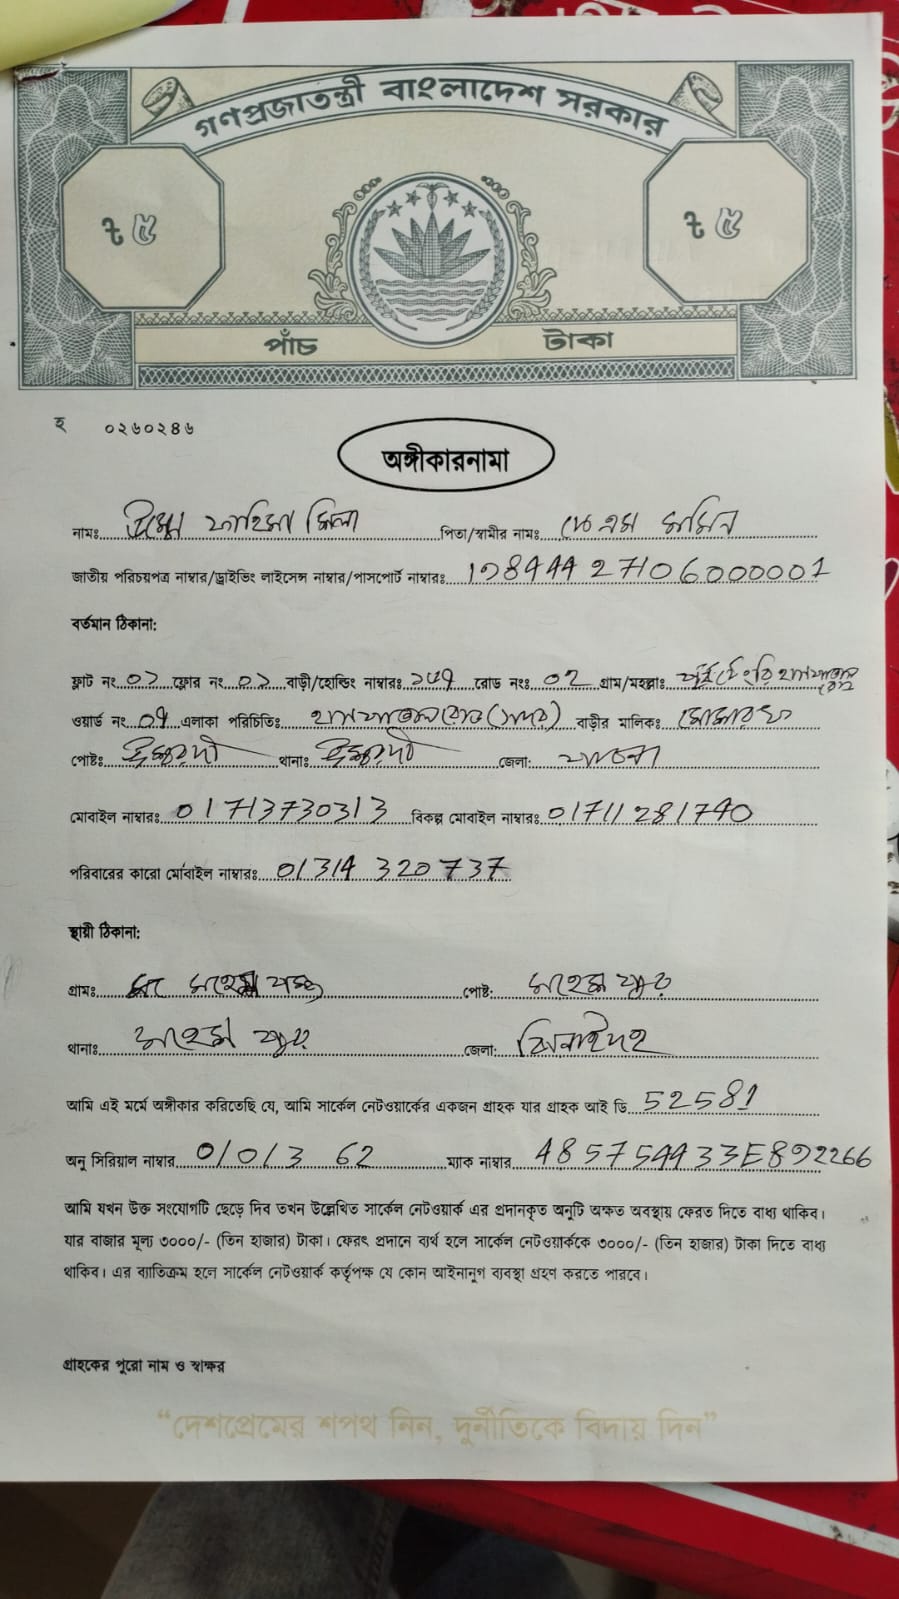 গণপ্রজাতন্ত্রী বাংলাদেশ সরকার
৳ ৫ ৳ ৫
পাঁচ টাকা
হ ০২৬০২৪৬
অঙ্গীকারনামা
নামঃ উম্মে ফাহিমা মিলা পিতা/স্বামীর নামঃ কে এম মমিন
জাতীয় পরিচয়পত্র নাম্বার/ড্রাইভিং লাইসেন্স নাম্বার/পাসপোর্ট নাম্বারঃ
বর্তমান ঠিকানা:
ফ্লাট নং ০১ ফ্লোর নং ০১ বাড়ী/হোল্ডিং নাম্বারঃ রোড নংঃ ০২ গ্রাম/মহল্লাঃ
ওয়ার্ড নং ০৭ এলাকা পরিচিতিঃ হাসপাতাল রোড (সদর) বাড়ীর মালিকঃ মোশারফ
পোষ্টঃ ঈশ্বরদী থানাঃ ঈশ্বরদী জেলা: পাবনা
মোবাইল নাম্বারঃ 01713730313 বিকল্প মোবাইল নাম্বারঃ 01711281740
পরিবারের কারো মোবাইল নাম্বারঃ 01314 320737
স্থায়ী ঠিকানা:
গ্রামঃ মহেশপুর পোষ্ট: মহেশপুর
থানাঃ মহেশপুর জেলা: ঝিনাইদহ
আমি এই মর্মে অঙ্গীকার করিতেছি যে, আমি সার্কেল নেটওয়ার্কের একজন গ্রাহক যার গ্রাহক আই ডি 52581
অনু সিরিয়াল নাম্বার 01013 62 ম্যাক নাম্বার
আমি যখন উক্ত সংযোগটি ছেড়ে দিব তখন উল্লেখিত সার্কেল নেটওয়ার্ক এর প্রদানকৃত অনুটি অক্ষত অবস্থায় ফেরত দিতে বাধ্য থাকিব।
যার বাজার মূল্য ৩০০০/- (তিন হাজার) টাকা। ফেরৎ প্রদানে ব্যর্থ হলে সার্কেল নেটওয়ার্ককে ৩০০০/- (তিন হাজার) টাকা দিতে বাধ্য
থাকিব। এর ব্যাতিক্রম হলে সার্কেল নেটওয়ার্ক কর্তৃপক্ষ যে কোন আইনানুগ ব্যবস্থা গ্রহণ করতে পারবে।
গ্রাহকের পুরো নাম ও স্বাক্ষর
“দেশপ্রেমের শপথ নিন, দুর্নীতিকে বিদায় দিন”